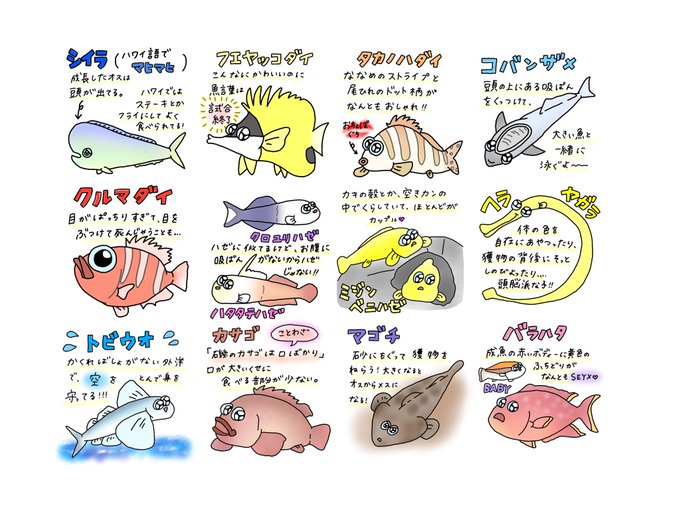 シイラ(ハワイ語でマヒマヒ)
成長したオスは
頭が出てる。
ハワイでは
ステーキとか
フライにしてよく
食べられてる!
フエヤッコダイ
こんなにかわいいのに
魚言葉は
試合
終了
タカノハダイ
ななめのストライプと
尾びれのドット柄が
なんともおしゃれ!!
おちょぼ
ぐち
コバンザメ
頭の上にある吸ばん
をくっつけて、
大きい魚と
一緒に
泳ぐよ〜〜
クルマダイ
目がぱっちりすぎて、目を
ぶつけて死んじゃうことも…
クロユリハゼ
ハゼに似てるけど、お腹に
吸ばんがないからハゼ
じゃない!!
ハタタテハゼ
カキの殻とか、空きカンの
中でくらしていて、ほとんどが
カップル♥
ミジン
ベニハゼ
ヘラヤガラ
体の色を
自在にあやつったり、
獲物の背後にそっと
しのびよったり…
頭脳派な子!!
トビウオ
かくればしょがない外洋
で、空をとんで身を
守ってる!!!
カサゴ
ことわざ
「磯のカサゴは口ばかり」
口が大きいくせに
食べる部分が少ない。
マゴチ
砂にもぐって獲物を
ねらう!大きくなると
オスからメスに
なる!
バラハタ
成魚の赤いボディーに黄色の
ふちどりが
なんともSEXY♥
BABY